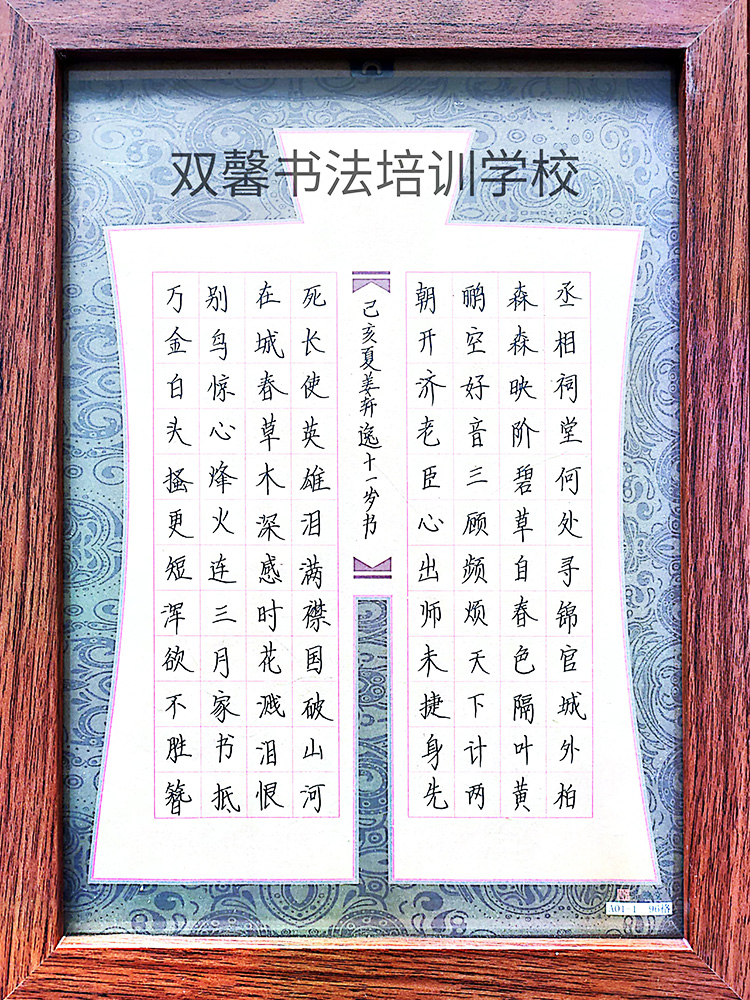 双馨书法培训学校
丞相祠堂何处寻锦官城外柏
森森映阶碧草自春色隔叶黄
鹂空好音三顾频烦天下计两
朝开济老臣心出师未捷身先
己亥夏姜弈逸十一岁书
死长使英雄泪满襟国破山河
在城春草木深感时花溅泪恨
别鸟惊心烽火连三月家书抵
万金白头搔更短浑欲不胜簪
A01 1 96格